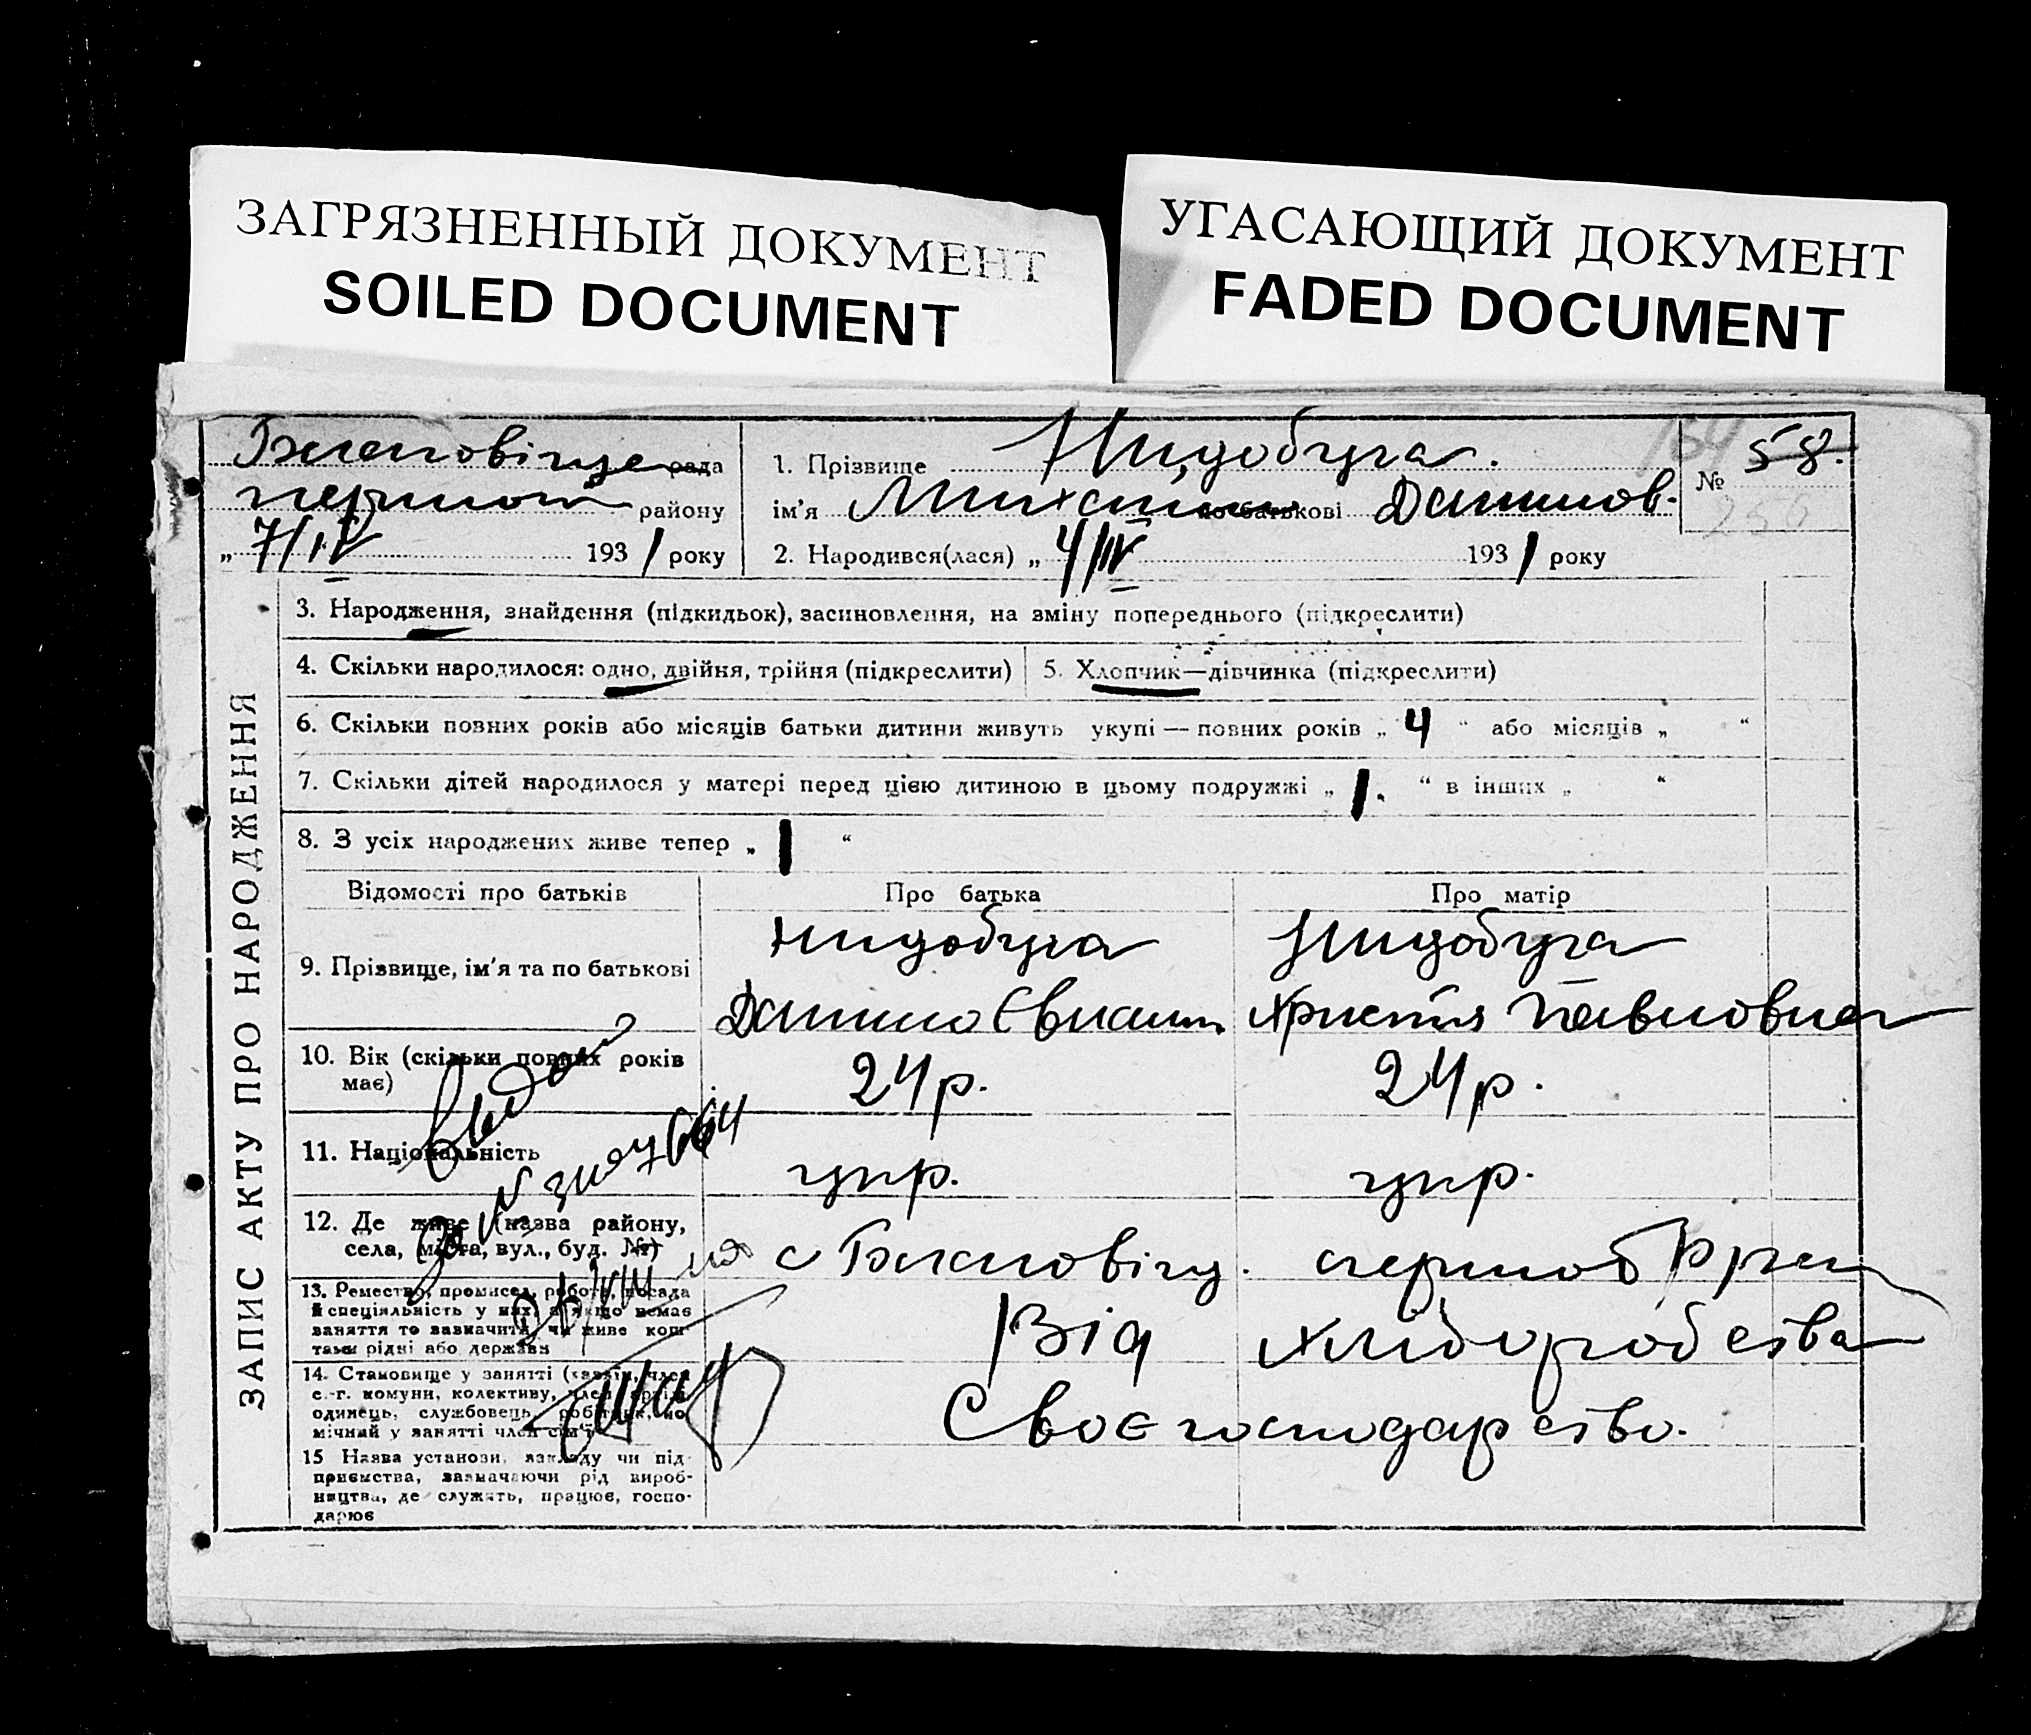 ЗАГРЯЗНЕННЫЙ ДОКУМЕНТ
SOILED DOCUMENT
УГАСАЮЩИЙ ДОКУМЕНТ
FADED DOCUMENT
рада
району
„ 7/IV 1931 року
1. Прізвище Нидобуга.
ім'я Михайло по батькові Данилов.
2. Народився(лася) „ 4/IV 1931 року
№ 58.
ЗАПИС АКТУ ПРО НАРОДЖЕННЯ
3. Народження, знайдення (підкидьок), засиновлення, на зміну попереднього (підкреслити)
4. Скільки народилося: одно, двійня, трійня (підкреслити)
5. Хлопчик—дівчинка (підкреслити)
6. Скільки повних років або місяців батьки дитини живуть укупі — повних років „ 4 “ або місяців „ “
7. Скільки дітей народилося у матері перед цією дитиною в цьому подружжі „ 1. “ в інших „ “
8. З усіх народжених живе тепер „ 1 “
Відомості про батьків
Про батька
Про матір
9. Прізвище, ім'я та по батькові
Нидобуга
Данило
Нидобуга
Христя Павловна
10. Вік (скільки повних років
має)
24 р.
24 р.
11. Національність
укр.
укр.
12. Де живе (назва району,
села, міста, вул., буд. №)
с
13. Ремество, промисел, робота, посада
й спеціяльність у них, а якщо немає
заняття то зазначити, чи живе кош-
тами рідні або держави
Від хліборобства
14. Становище у занятті (хазяїн, член
с.-г. комуни, колективу, член артілі,
одинець, службовець, робітник, по-
мічний у занятті член сім'ї)
Своє господарство.
15 Назва установи, закладу чи під-
приємства, зазначаючи рід вироб-
ництва, де служить, працює, госпо-
дарює